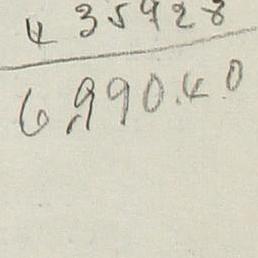 435928
6,990.40